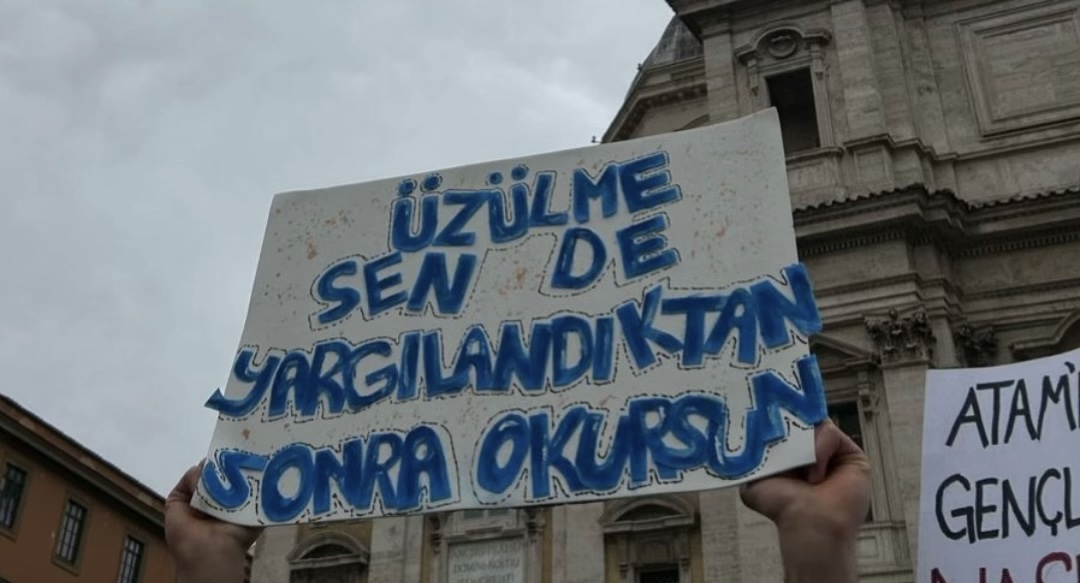 ÜZÜLME
SEN DE
YARGILANDIKTAN
SONRA OKURSUN
GENÇL